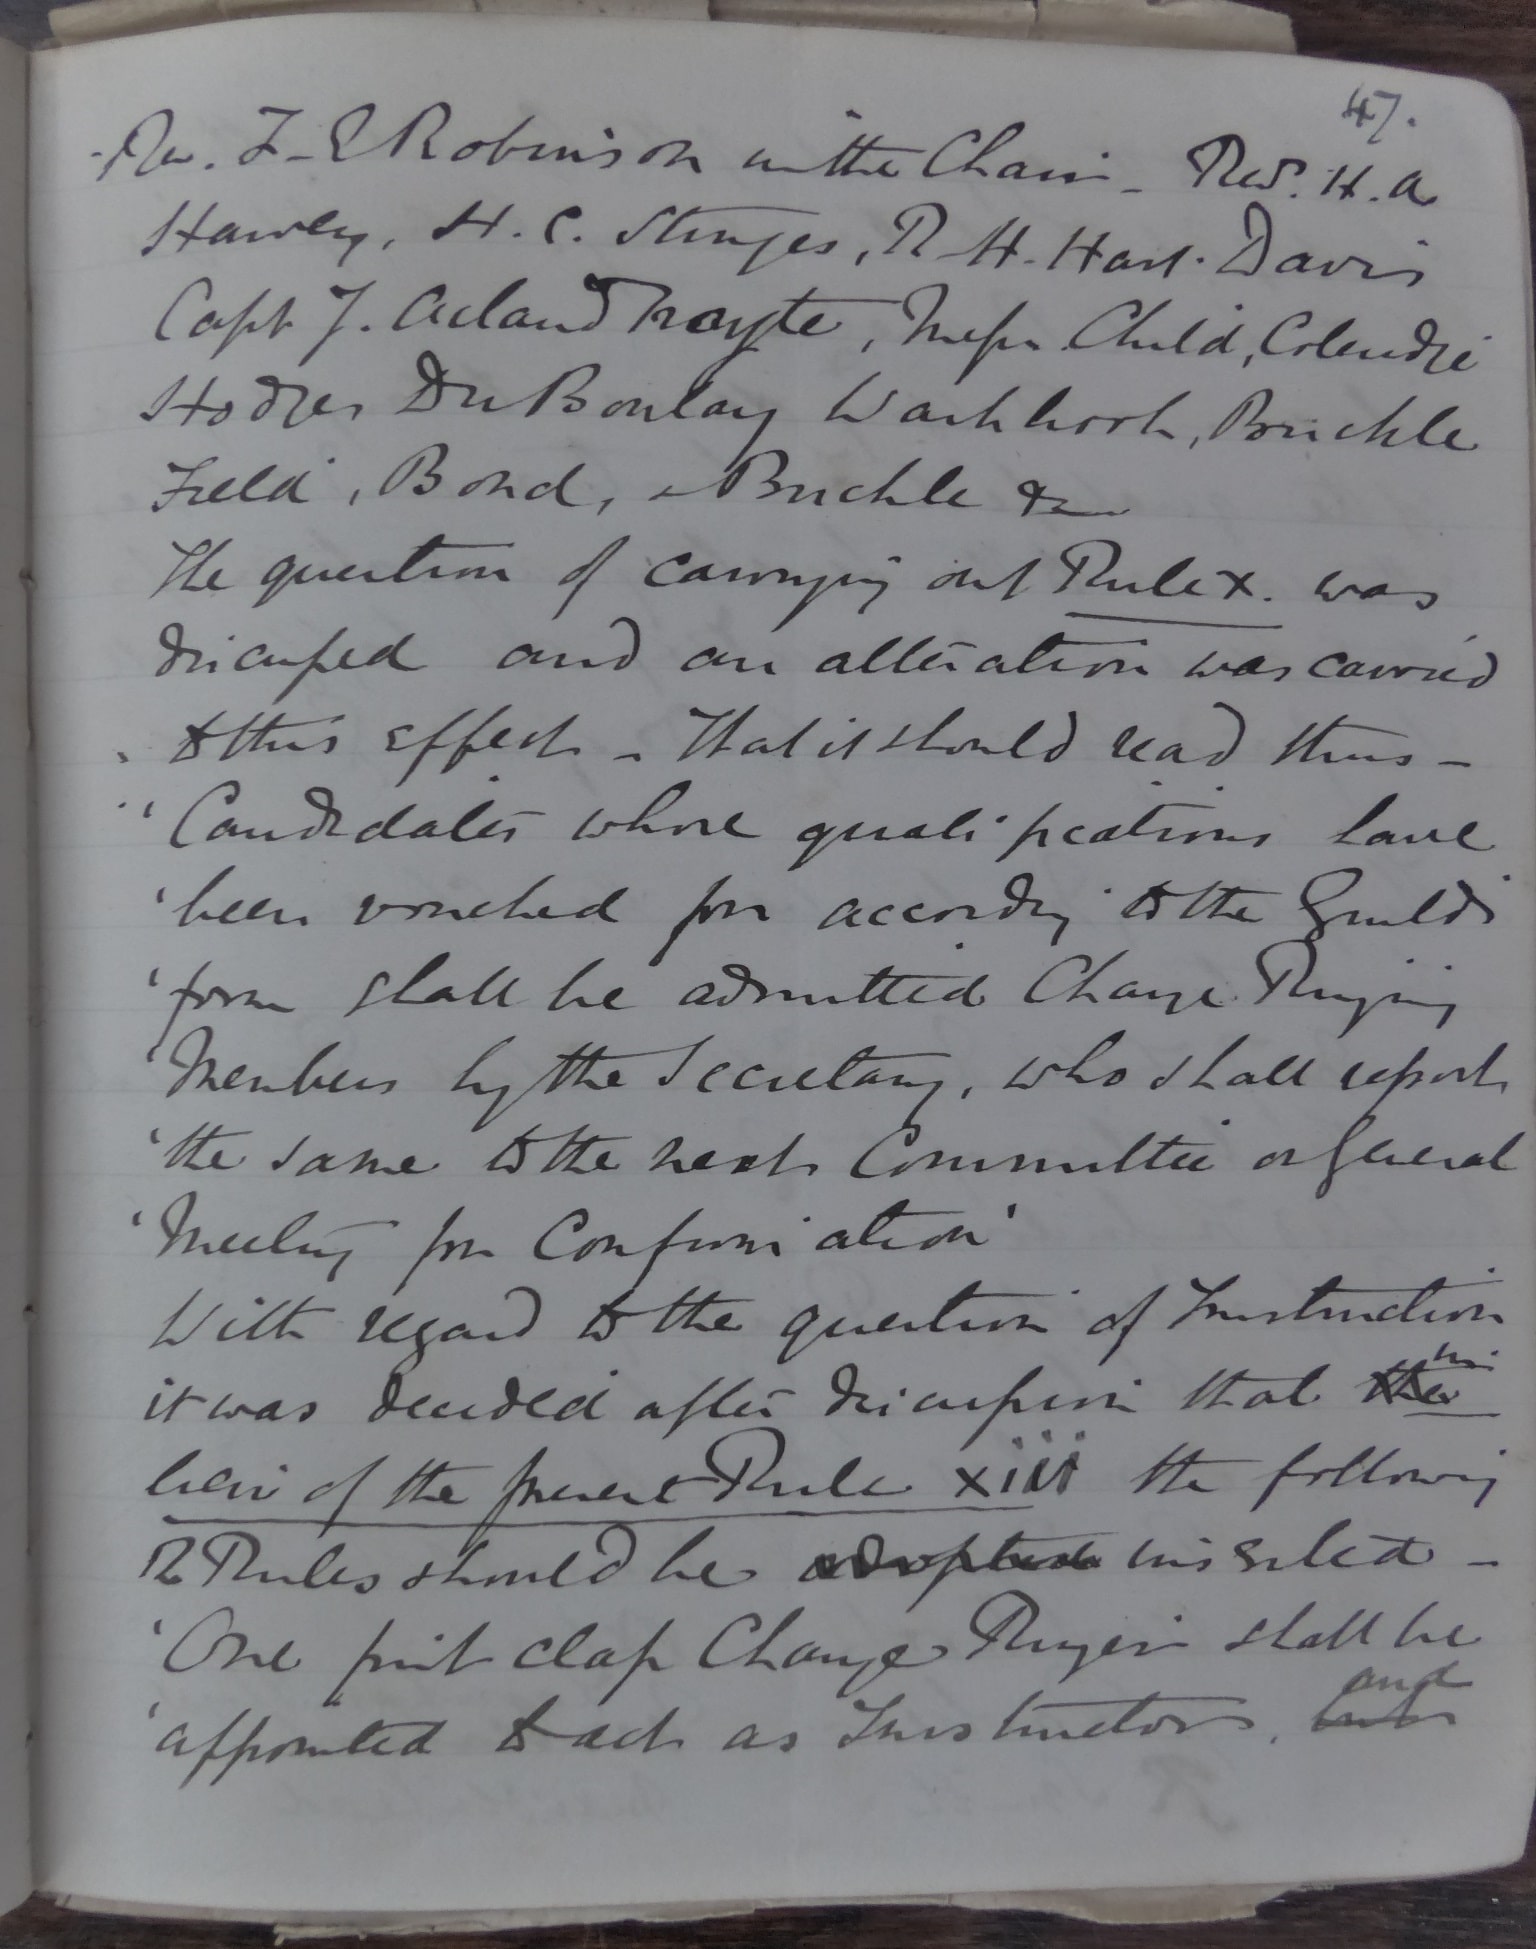 47.
Rev. F. E Robinson in the Chair - Revs. H. A
Harvey, H. C. Sturges, R H. Hart. Davis
Capt J. Acland Troyte, Messrs Child, Coleridge
Hodges Du Boulay Washbrook, Brickle
Field, Bond, & Buckle &c
The question of carrying out Rule X. was
discussed and an alteration was carried
to this effect - That it should read thus -
'Candidates whose qualifications have
'been vouched for according to the Guild's
'form shall be admitted Change Ringing
'Members by the Secretary, who shall report
'the same to the next Committee or General
'Meeting for Confirmation'
With regard to the question of Instruction
it was decided after discussion that the in
lieu of the present Rule xiii the following
2 Rules should be adopted inserted -
'One first class Change Ringer shall be
'appointed to act as Instructor, but and